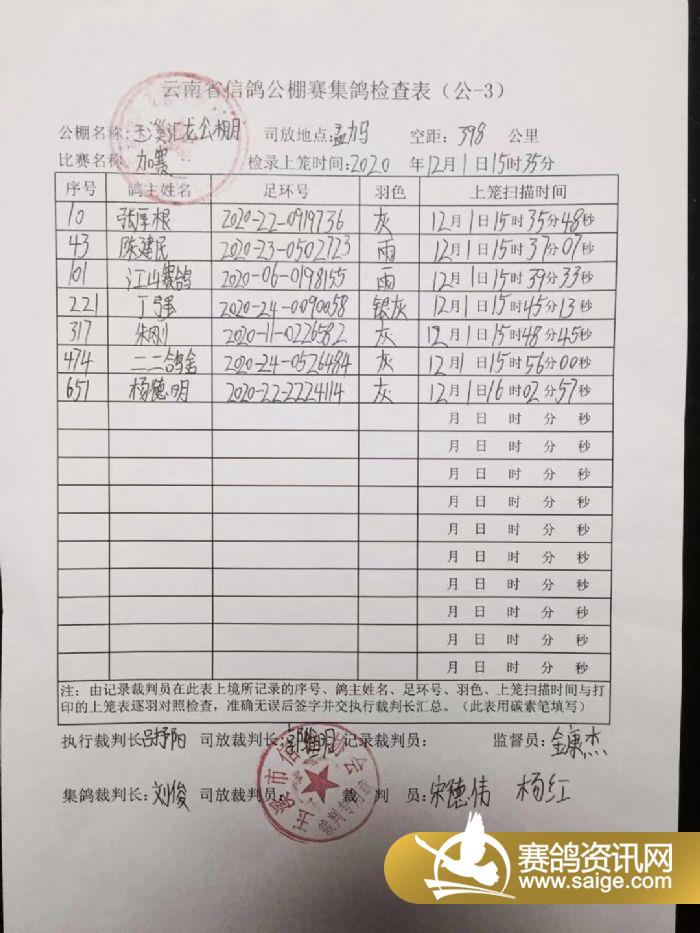 云南省信鸽公棚赛集鸽检查表（公-3）
公棚名称：玉溪汇龙公棚 司放地点：孟力马 空距：398 公里
比赛名称 加赛 检录上笼时间：2020 年12月1日15时35分
序号 鸽主姓名 足环号 羽色 上笼扫描时间
10 张厚根 2020-22-0919736 灰 12月1日15时35分48秒
43 陈建民 2020-23-0502723 雨 12月1日15时37分07秒
101 江山赛鸽 2020-06-0198155 雨 12月1日15时39分33秒
221 丁强 2020-24-0090058 银灰 12月1日15时45分13秒
317 朱刚 2020-11-0226582 灰 12月1日15时48分45秒
474 二二鸽舍 2020-24-0526484 灰 12月1日15时56分00秒
651 杨德明 2020-22-2224114 灰 12月1日16时02分57秒
月 日 时 分 秒
月 日 时 分 秒
月 日 时 分 秒
月 日 时 分 秒
月 日 时 分 秒
月 日 时 分 秒
月 日 时 分 秒
月 日 时 分 秒
月 日 时 分 秒
月 日 时 分 秒
注：由记录裁判员在此表上填所记录的序号、鸽主姓名、足环号、羽色、上笼扫描时间与打
印的上笼表逐羽对照检查，准确无误后签字并交执行裁判长汇总。（此表用碳素笔填写）
执行裁判长：吕抒阳 司放裁判长： 记录裁判员： 监督员：金康杰
集鸽裁判长：刘俊 司放裁判员： 裁 判 员：宋德伟 杨红
玉溪市信鸽协会
裁判专用章
赛鸽资讯网
www.saige.com